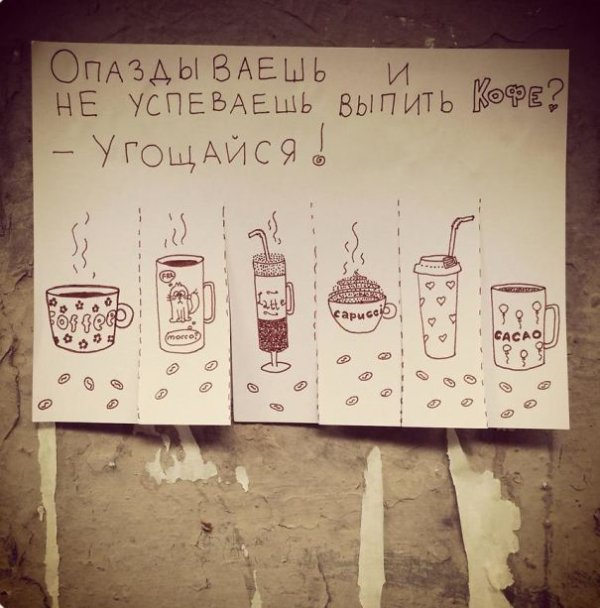 Опаздываешь и
не успеваешь выпить кофе?
- Угощайся!
coffee
morro?
Latte
capucci
CACAO